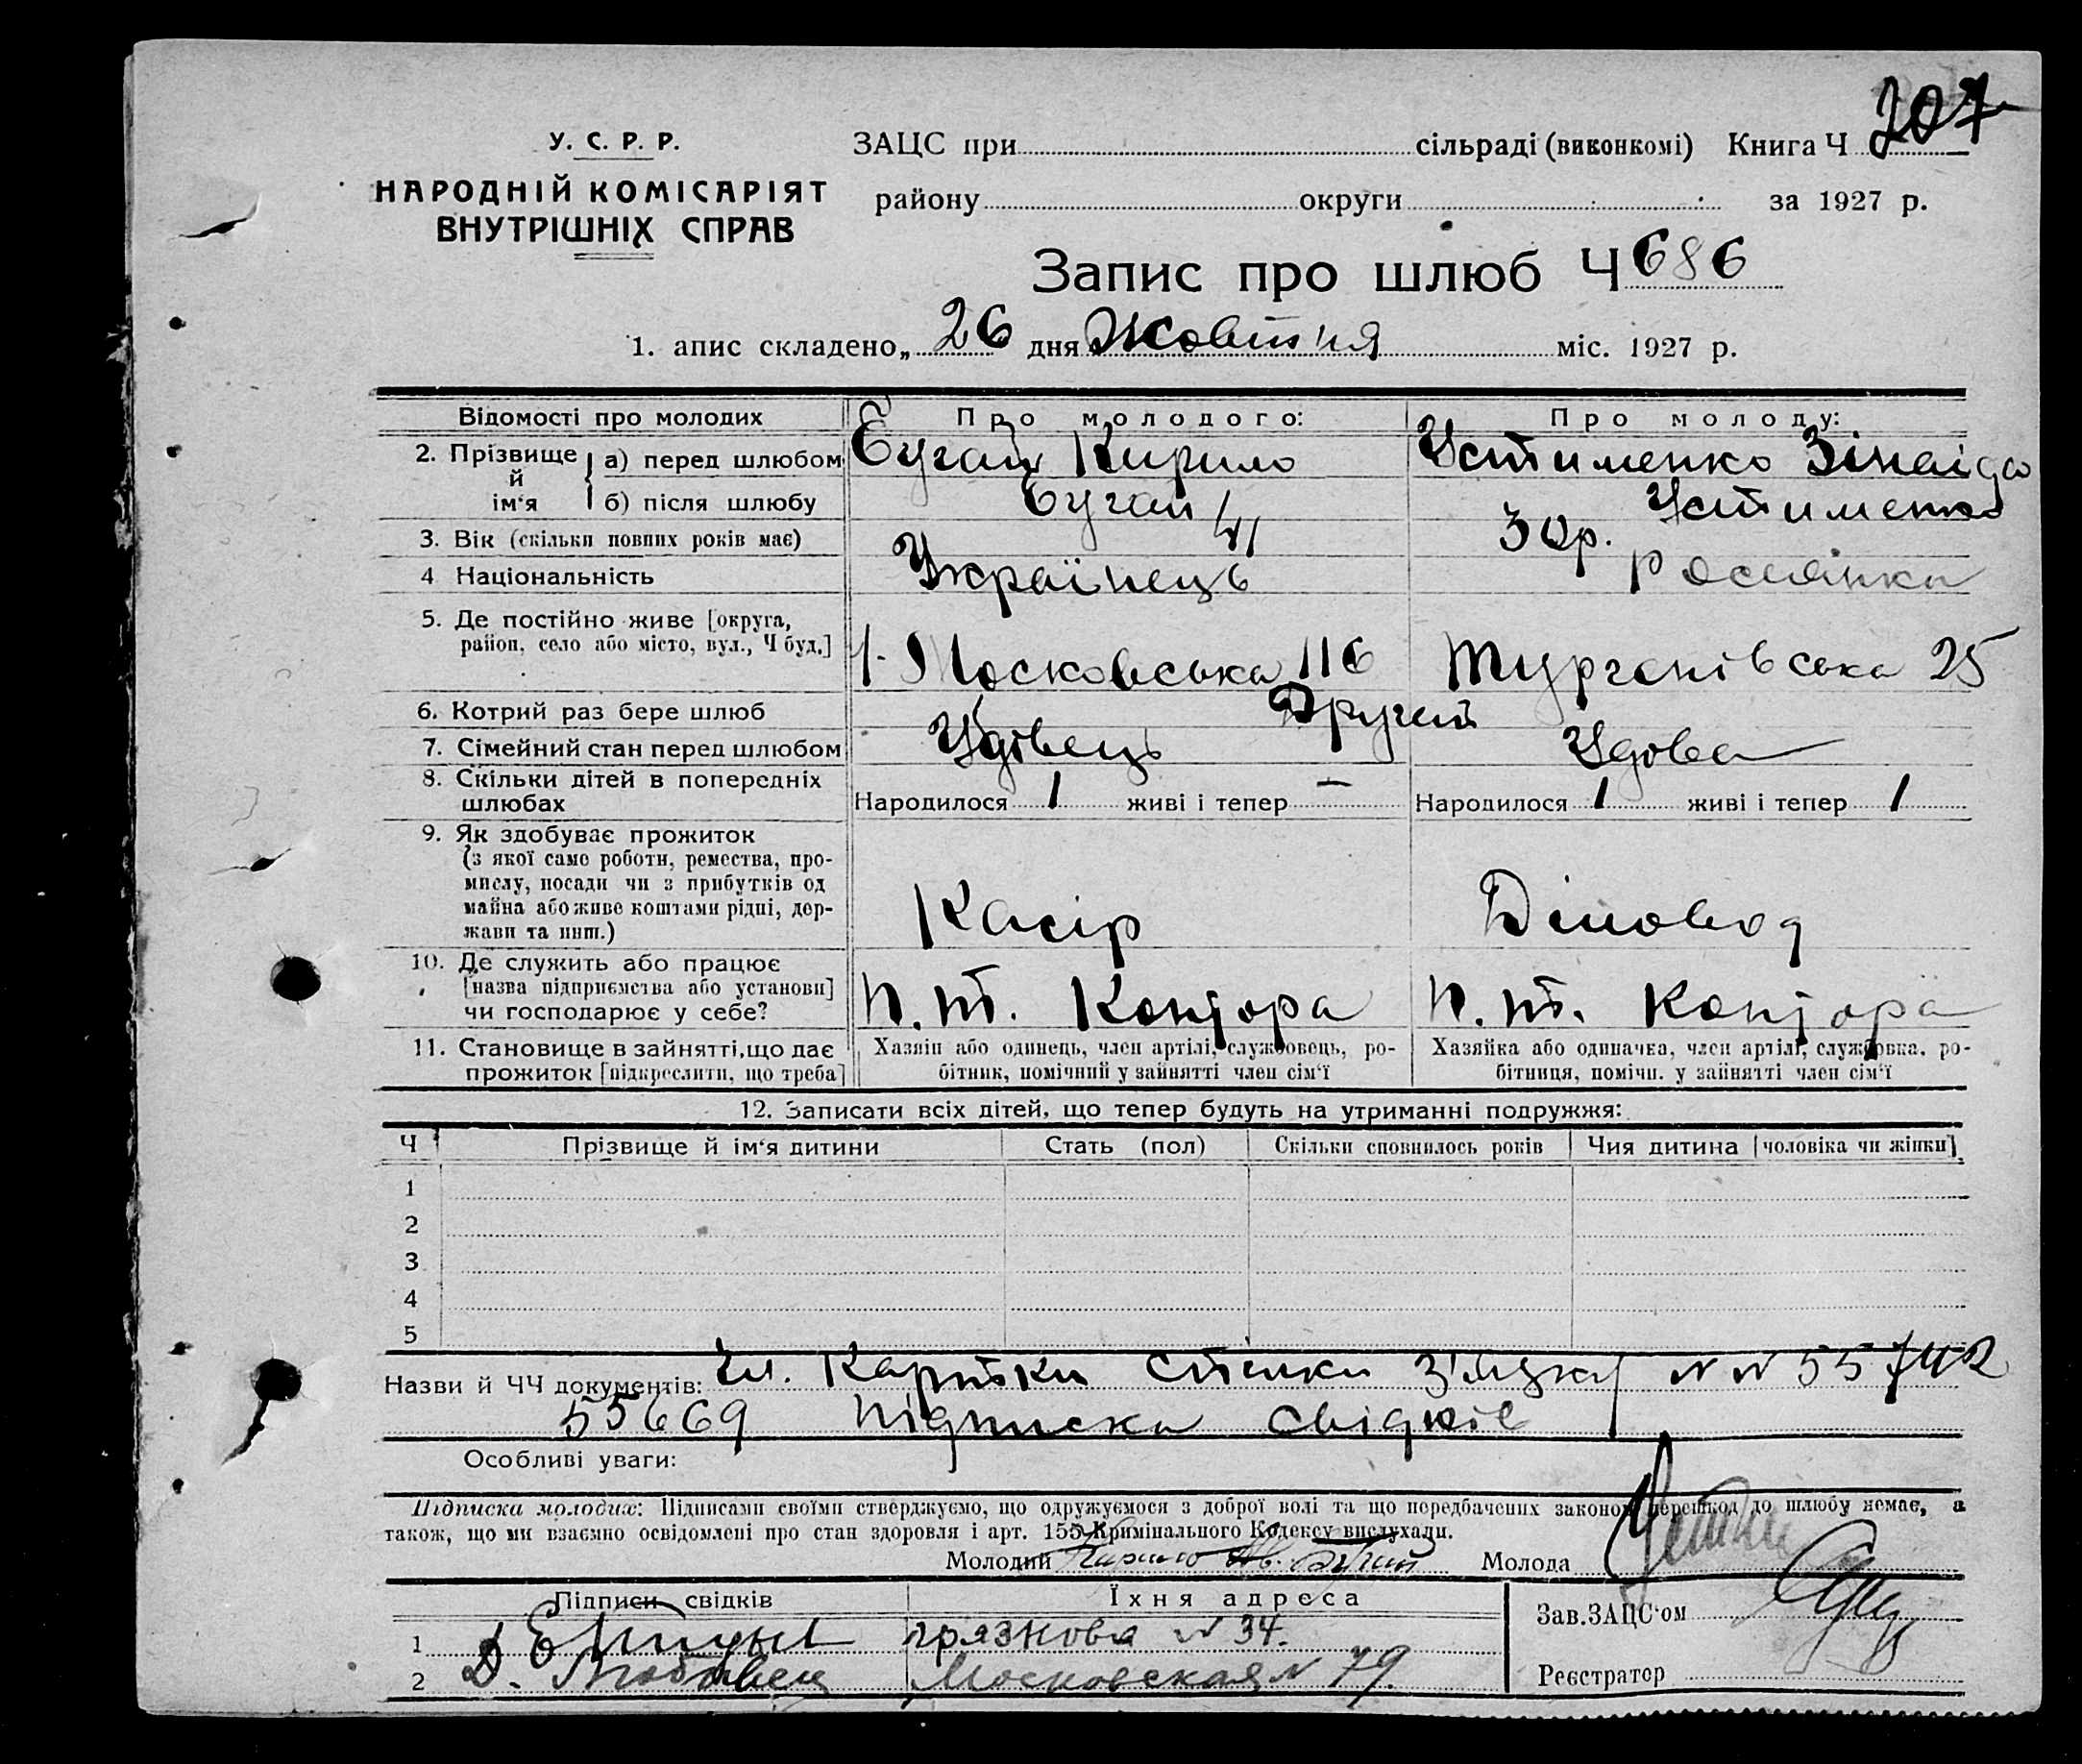 У. С. Р. Р.
НАРОДНІЙ КОМІСАРІЯТ
ВНУТРІШНІХ СПРАВ
ЗАЦС при сільраді (виконкомі) Книга Ч 207
району округи за 1927 р.
Запис про шлюб Ч 686
1. апис складено „ 26 дня Жовтня міс. 1927 р.
Відомості про молодих Про молодого: Про молоду:
2. Прізвище й ім‘я а) перед шлюбом Бугай Кирило Устименко Зінаіда
б) після шлюбу Бугай Устименко
3. Вік (скільки повних років має) 41 30р.
4 Національність Українець Росіянка
5. Де постійно живе [округа,
район, село або місто, вул., Ч буд.] 1-Московська 116 Тургенівська 25
6. Котрий раз бере шлюб Другий
7. Сімейний стан перед шлюбом Удівець Удова
8. Скільки дітей в попередніх
шлюбах Народилося 1 живі і тепер — Народилося 1 живі і тепер 1
9. Як здобуває прожиток
(з якої само роботи, ремества, про-
мислу, посади чи з прибутків од
майна або живе коштами рідні, дер-
жави та инш.) Касір Діловод
10. Де служить або працює
[назва підприємства або установи]
чи господарює у себе? П. Т. Контора П. Т. Контора
11. Становище в зайнятті, що дає
прожиток [підкреслити, що треба]
Хазяїн або одинець, член артілі, службовець, ро-
бітник, помічний у зайнятті член сім‘ї
Хазяйка або одиначка, член артілі, службовка, ро-
бітниця, помічн. у зайнятті член сім‘ї
12. Записати всіх дітей, що тепер будуть на утриманні подружжя:
Ч Прізвище й ім‘я дитини Стать (пол) Скільки сповнилось років Чия дитина [чоловіка чи жінки]
1
2
3
4
5
Назви й ЧЧ документів: Чл. Картки спілки Зв'язку N N 55742
55669 підписка свідків
Особливі уваги:
Підписка молодих: Підписами своїми стверджуємо, що одружуємося з доброї волі та що передбачених законом перешкод до шлюбу немає, а
також, що ми взаємно освідомлені про стан здоровля і арт. 155 Кримінального Кодексу вислухали.
Молодий Кирило Ав. Бугай Молода
Підписи свідків Їхня адреса
Зав. ЗАЦС‘ом
1 Грязнова N 34.
2 Д. Московская N 79.
Реєстратор